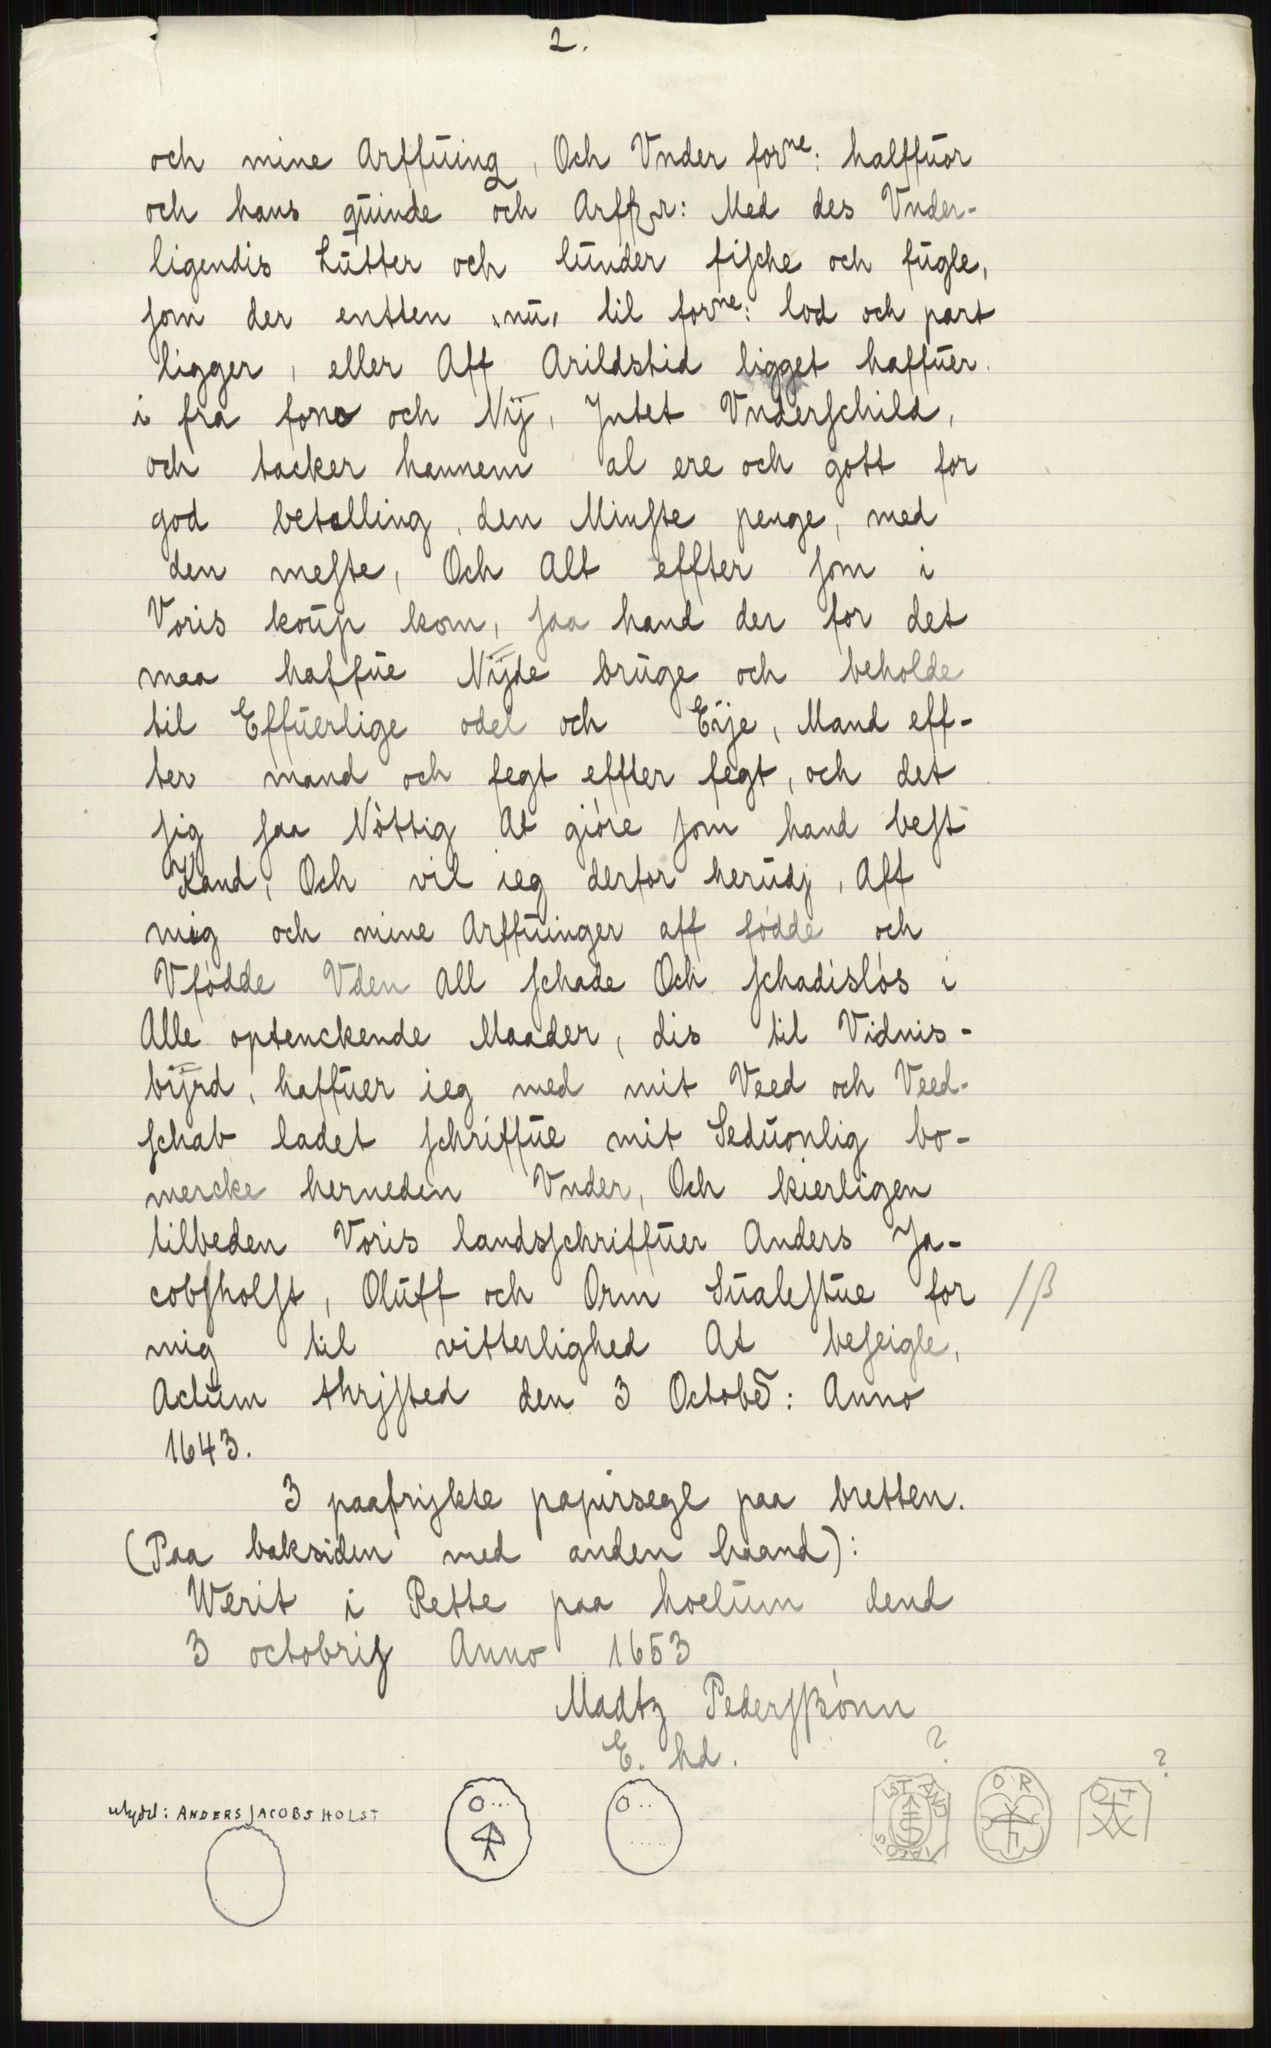 2.
och mine Arffuing, Och Vnder forne: halffuor
och hans quinde och Arffr: Med des Vnder-
ligendis Lutter och lunder fische och fugle,
som der entten "nu" til forne: lod och part
ligger, eller Aff Arildstid ligget haffuer.
i fra forno och Nÿ, Intet Vnderschild,
och tacker hannem al ere och gott for
god betalling, den Minste penge, med
den meste, Och Alt effter som i
Voris koup kom, saa hand der for det
maa haffue Nÿde bruge och beholde
til Effuerlige odel och Eÿe, Mand eff-
ter mand och fegt effter fegt, och det
sig saa Nòttig At giòre som hand best
Kand, Och vil ieg derfor herudj, Aff
mig och mine Arffuinger aff fòdde och
Vfòdde Vden All schade Och schadislòs i
Alle optenckende Maader, dis til Vidnis-
bÿrd, haffuer ieg med mit Veed och Veed-
schab ladet schriffue mit Seduonlig bo-
mercke herneden Vnder, Och kierligen
tilbeden Voris landsschriffuer Anders Ja-
cobsholst, Oluff och Orm Sualestue for /ß
mig til vitterlighed At beseigle,
Actum thrjsted den 3 Octobr: Anno
1643.
3 paatrykte papirsegl paa bretten.
(Paa baksiden med anden haand):
Werit i Rette paa hoelum dend
3 octobris Anno 1653
Madtz Pedersßònn
E. hd.
? ?
utydel: ANDERS JACOBS HOLST O... O.. O R O T